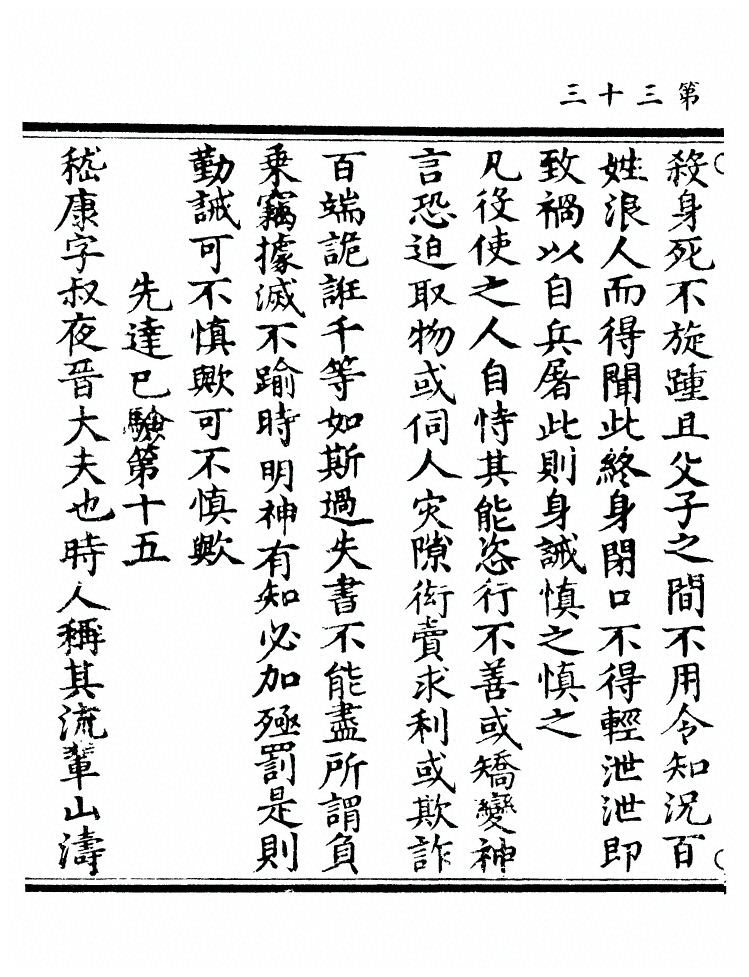 第三十三
殺身死不旋踵且父子之間不用令知況百
姓浪人而得聞此終身閉口不得輕泄泄即
致禍以自兵屠此則身誡慎之慎之
凡役使之人自恃其能恣行不善或矯變神
言恐迫取物或伺人灾隙衒賣求利或欺詐
百端詭誑千等如斯過失書不能盡所謂負
乗竊據滅不踰時明神有知必加殛罰是則
勤誡可不慎歟可不慎歟
先達已驗第十五
嵇康字叔夜晉大夫也時人稱其流輩山濤